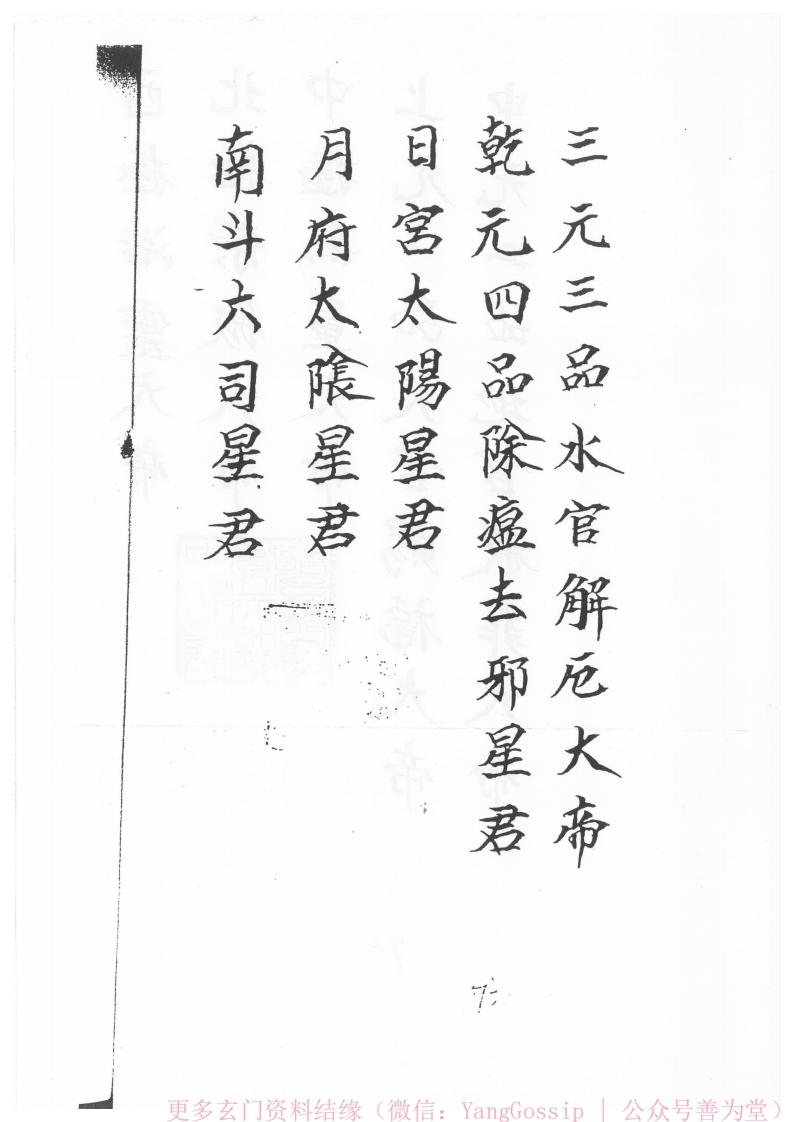 三元三品水官解厄大帝
乾元四品除瘟去邪星君
日宮太陽星君
月府太陰星君
南斗六司星君
更多玄门资料结缘（微信：YangGossip | 公众号善为堂）